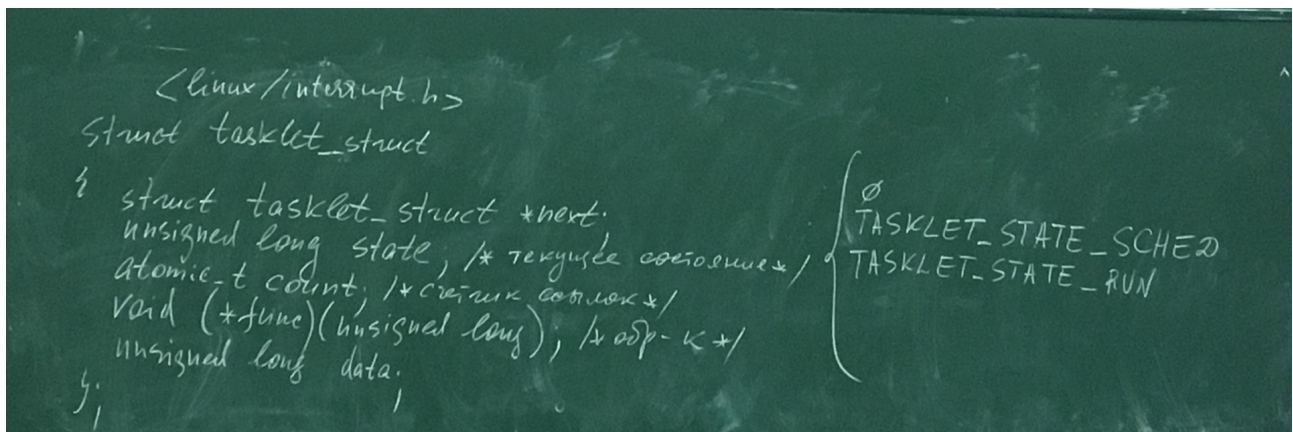 <linux/interrupt.h>
struct tasklet_struct
{
struct tasklet_struct *next;
unsigned long state; /* текущее состояние */
atomic_t count; /* счётчик ссылок */
void (*func)(unsigned long); /* обр-к */
unsigned long data;
};
{
0
TASKLET_STATE_SCHED
TASKLET_STATE_RUN